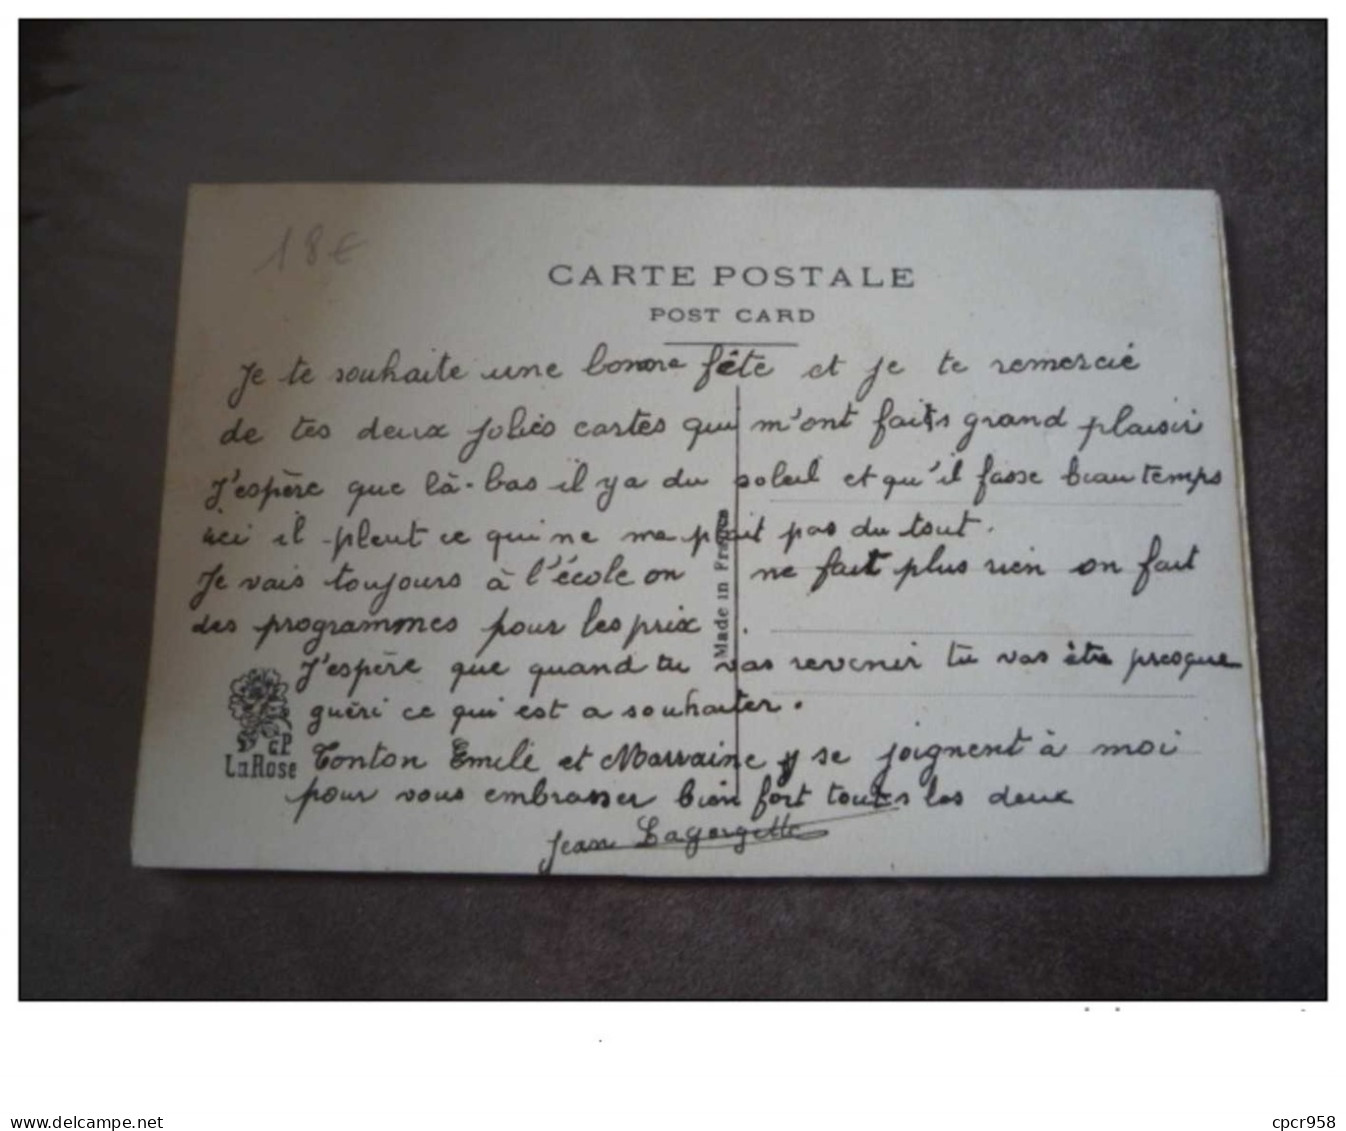 18€
CARTE POSTALE
POST CARD
Je te souhaite une bonne fête et je te remercié
de tes deux jolies cartes qui m'ont faits grand plaisir
J'espère que là-bas il ya du soleil et qu'il fasse beau temps
ici il pleut ce qui ne me plait pas du tout.
Je vais toujours à l'école on ne fait plus rien on fait
des programmes pour les prix.
J'espère que quand tu vas revenir tu vas être presque
guéri ce qui est a souhaiter.
Tonton Emile et Marraine se joignent à moi
pour vous embrasser bien fort toutes les deux
Jean Lagorgette
Made in France
CP
La Rose
www.delcampe.net
cpcr958